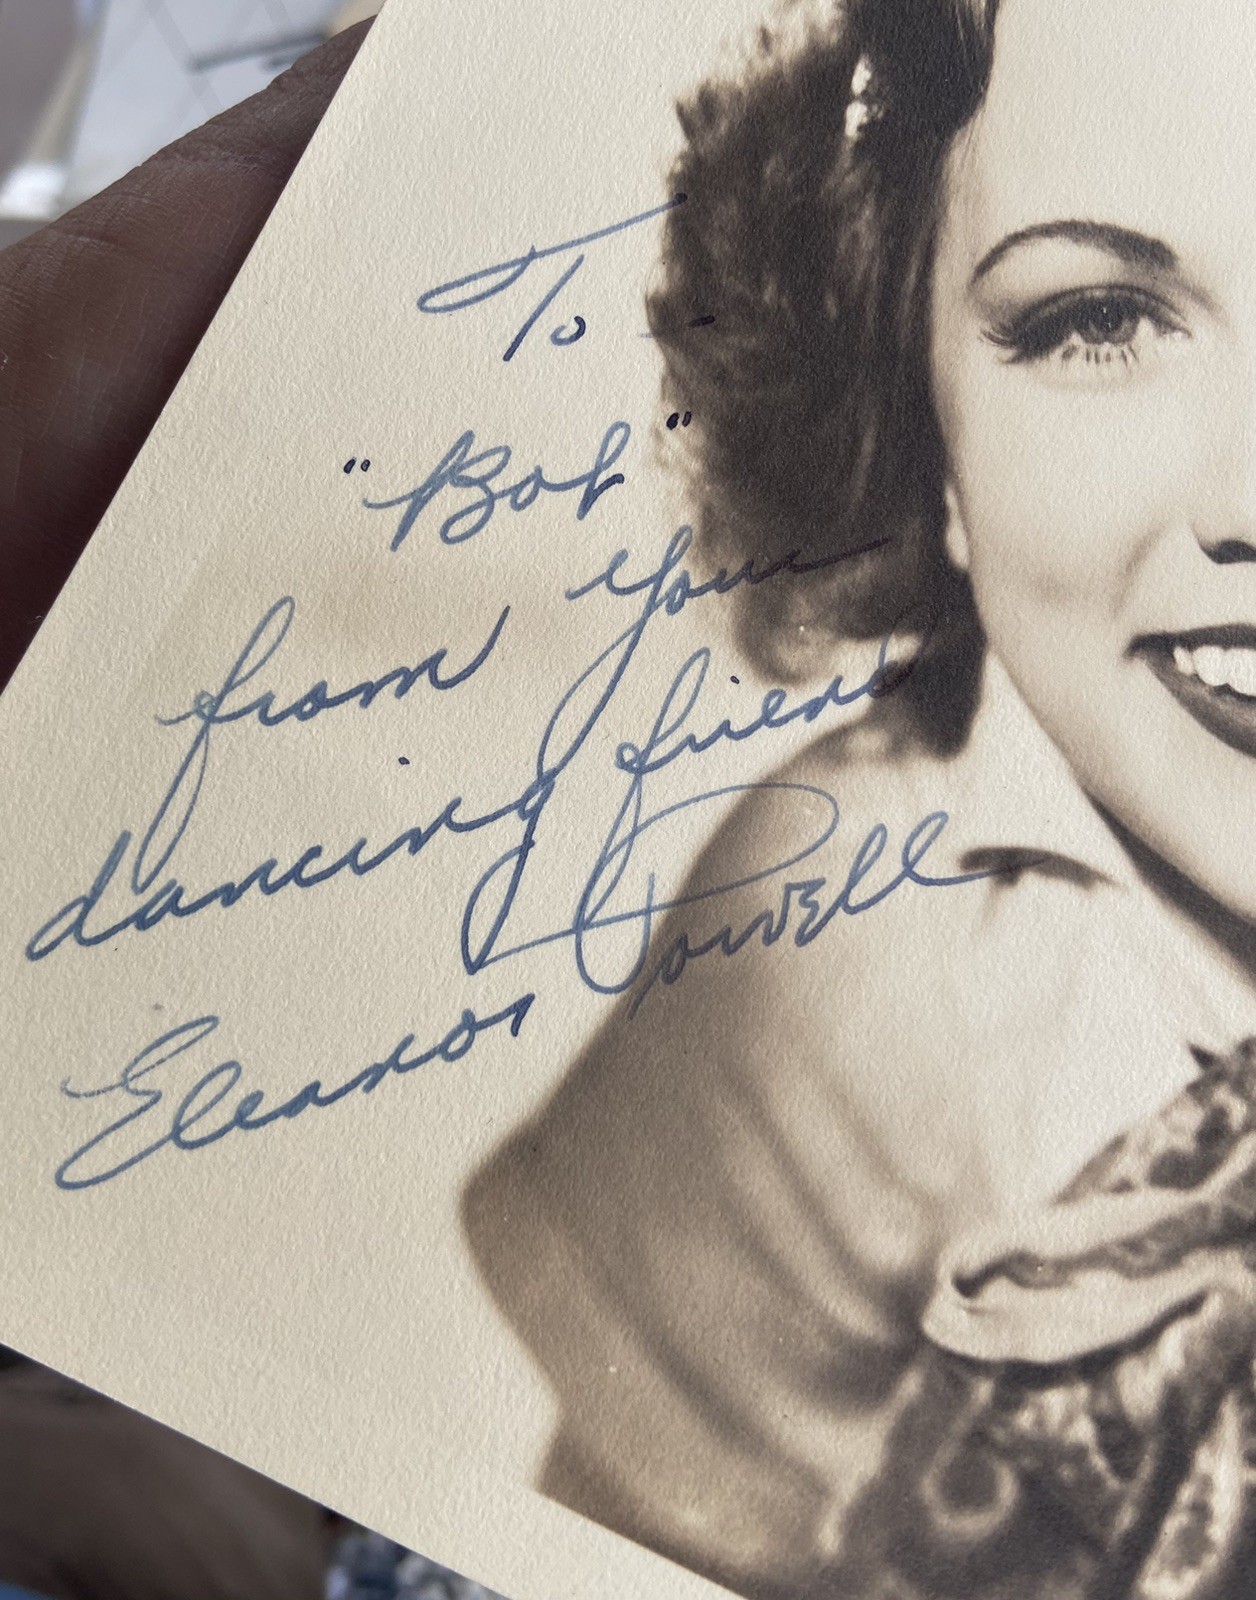 To -
"Bob"
from your
dancing friend
Eleanor Powell